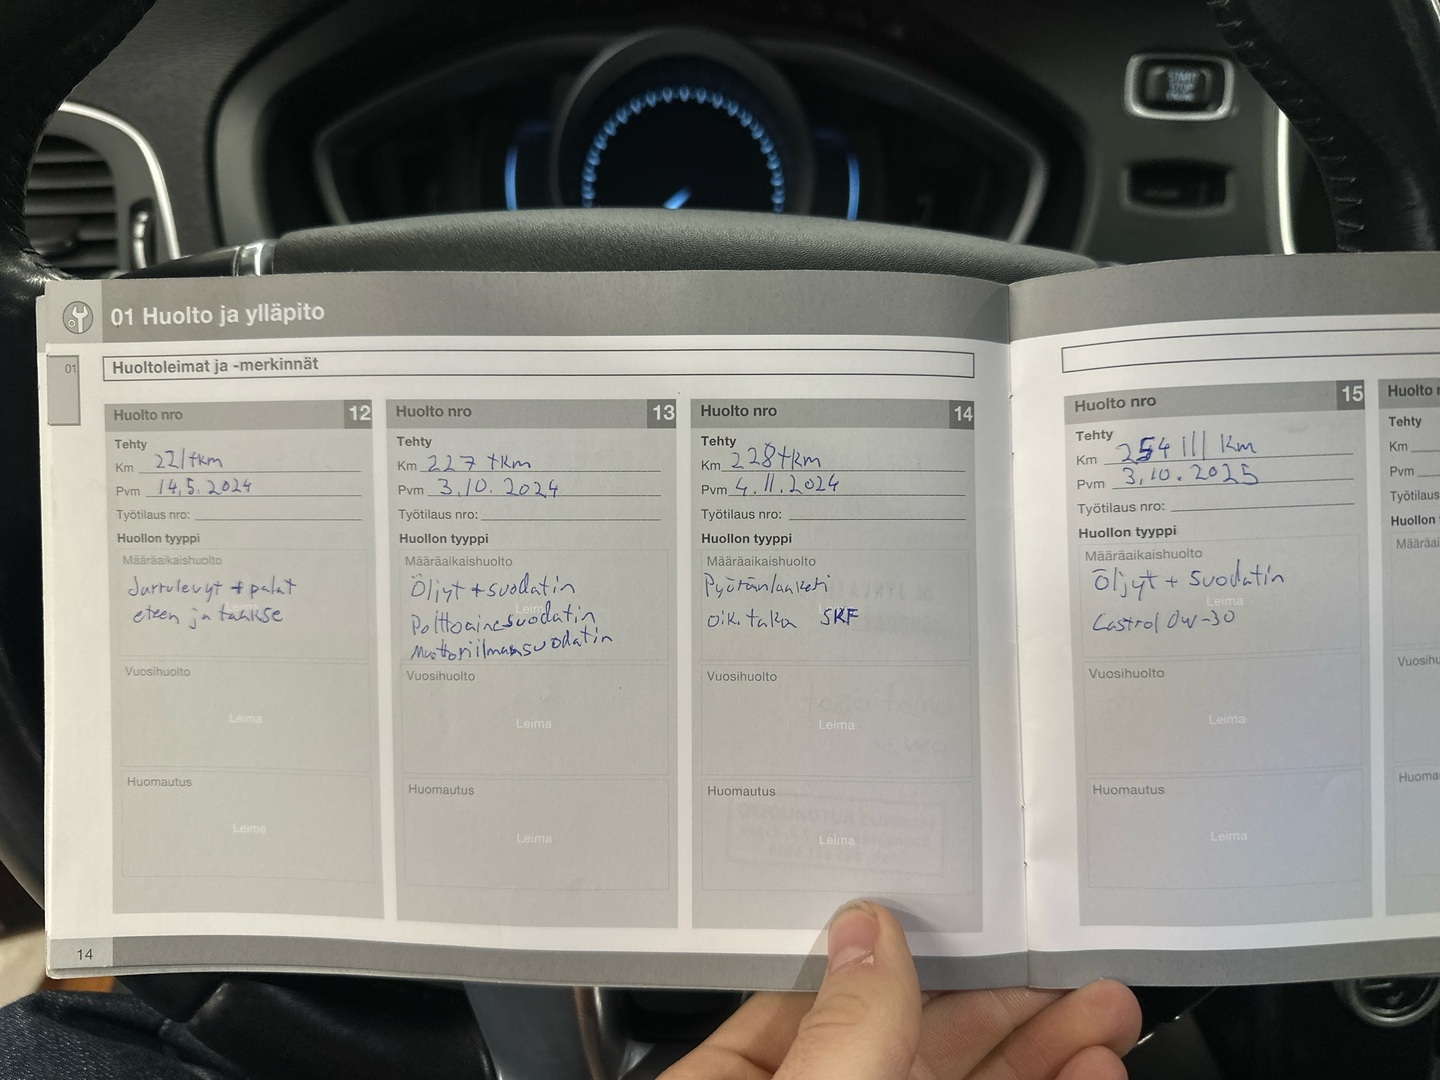 START
STOP
01 Huolto ja ylläpito
01
Huoltoleimat ja -merkinnät
Huolto nro 12
Tehty
Km 221tkm
Pvm 14.5.2024
Työtilaus nro:
Huollon tyyppi
Määräaikaishuolto
Jarrulevyt + palat
eteen ja taakse
Vuosihuolto
Leima
Huomautus
Leima
14
Huolto nro 13
Tehty
Km 227 tkm
Pvm 3.10.2024
Työtilaus nro:
Huollon tyyppi
Määräaikaishuolto
Öljyt + suodatin
Leima
Polttoainesuodatin
Moottoriilmansuodatin
Vuosihuolto
Leima
Huomautus
Leima
Huolto nro 14
Tehty
Km 228tkm
Pvm 4.11.2024
Työtilaus nro:
Huollon tyyppi
Määräaikaishuolto
Pyöränlaakeri
oik. taka SKF
Vuosihuolto
Leima
Huomautus
Leima
Huolto nro 15
Tehty
Km 254 111 km
Pvm 3.10.2025
Työtilaus nro:
Huollon tyyppi
Määräaikaishuolto
Öljyt + suodatin
Leima
Castrol 0w-30
Vuosihuolto
Leima
Huomautus
Leima
Huolto
Tehty
Km
Pvm
Työtilaus
Huollon
Määräai
Vuosihu
Huoma